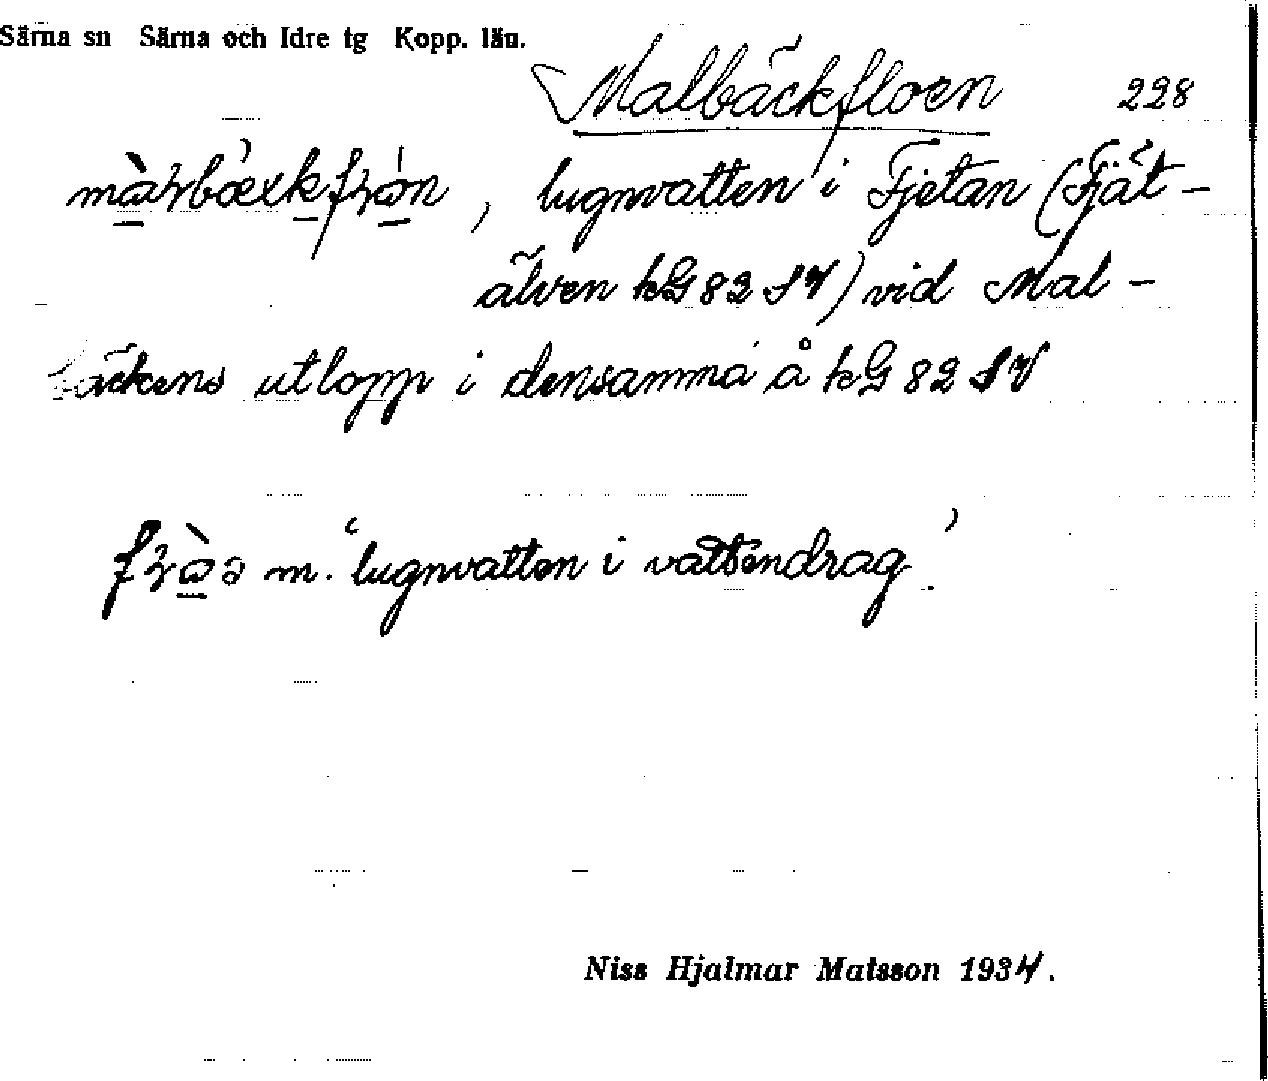 Särna sn Särna och Idre tg Kopp. län.
Malbäckfloen 228
lugnvatten i Fjetan (Fjät-
älven kG 82 SV) vid Mal-
bäckens utlopp i densamma å kG 82 SV
m. 'lugnvatten i vattendrag'.
Niss Hjalmar Matsson 1934.